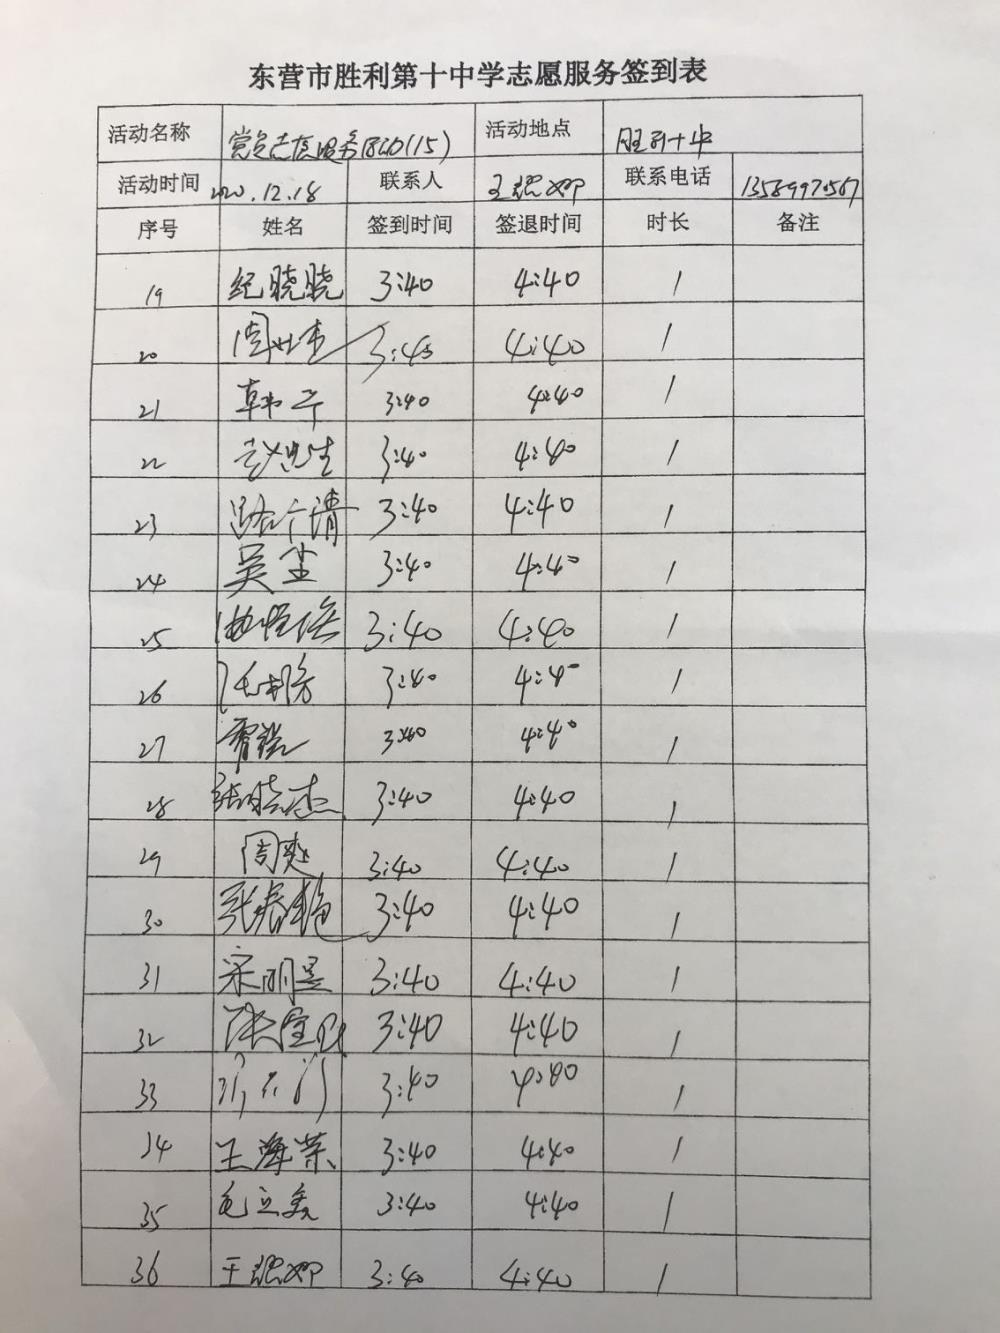 东营市胜利第十中学志愿服务签到表
活动名称 党员志愿服务活动(15) 活动地点 胜利十中
活动时间 2020.12.18 联系人 联系电话
序号 姓名 签到时间 签退时间 时长 备注
19 纪晓晓 3:40 4:40 1
20 3:45 4:40 1
21 3:40 4:40 1
22 3:40 4:40 1
23 3:40 4:40 1
24 吴尘 3:40 4:40 1
25 3:40 4:40 1
26 3:40 4:40 1
27 3:40 4:40 1
28 张晓杰 3:40 4:40 1
29 周爽 3:40 4:40 1
30 张春艳 3:40 4:40 1
31 宋明昱 3:40 4:40 1
32 3:40 4:40 1
33 3:40 4:40 1
34 王海荣 3:40 4:40 1
35 毛立美 3:40 4:40 1
36 3:40 4:40 1